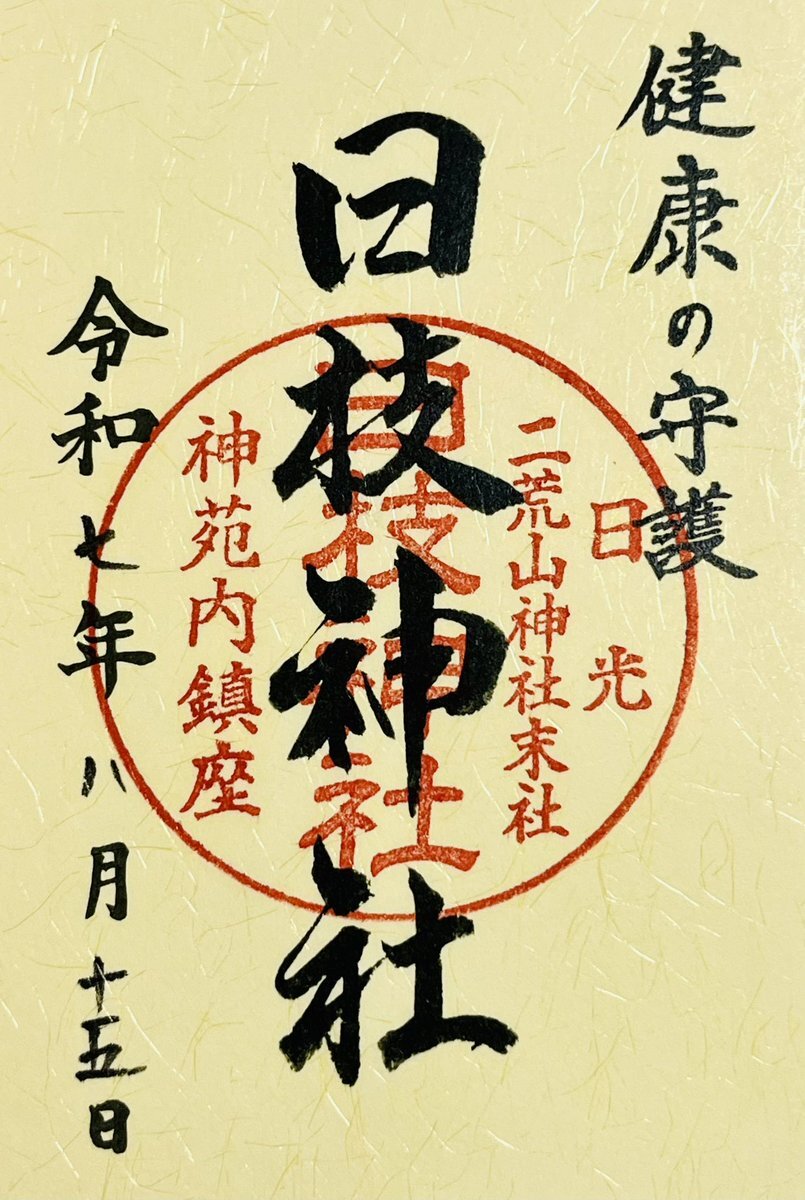 健康の守護
日光
二荒山神社末社
日枝神社
日枝神社
神苑内鎮座
令和七年八月十五日